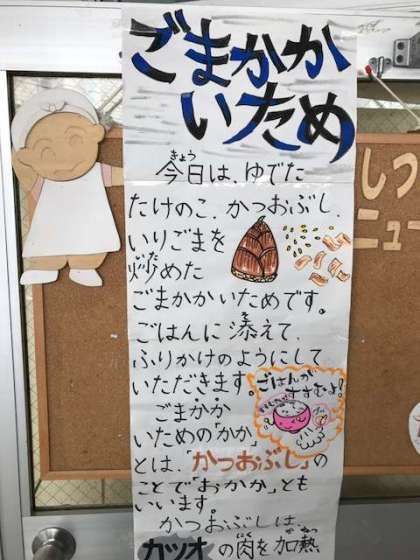 ごまかか
いため
今日は、ゆでた
たけのこ、かつおぶし、
いりごまを
炒めた
ごまかかいためです。
ごはんに添えて、
ふりかけのようにして
いただきます。
ごはんが
すすむよ!
ごまかか
いための「かか」
とは、「かつおぶし」の
ことで「おかか」とも
いいます。
かつおぶしは、
カツオの肉を加熱
しつ
ニュー